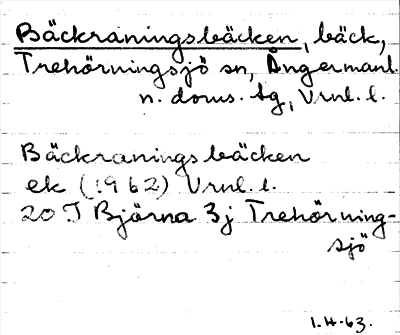 Bäckraningsbäcken, bäck,
Trehörningsjö sn, Ångermanl.
n. doms. tg, Vrnl. l.
Bäckraningsbäcken
ek (1962) Vrnl. l.
20 J Björna 3j Trehörning-
sjö
1.4.63.